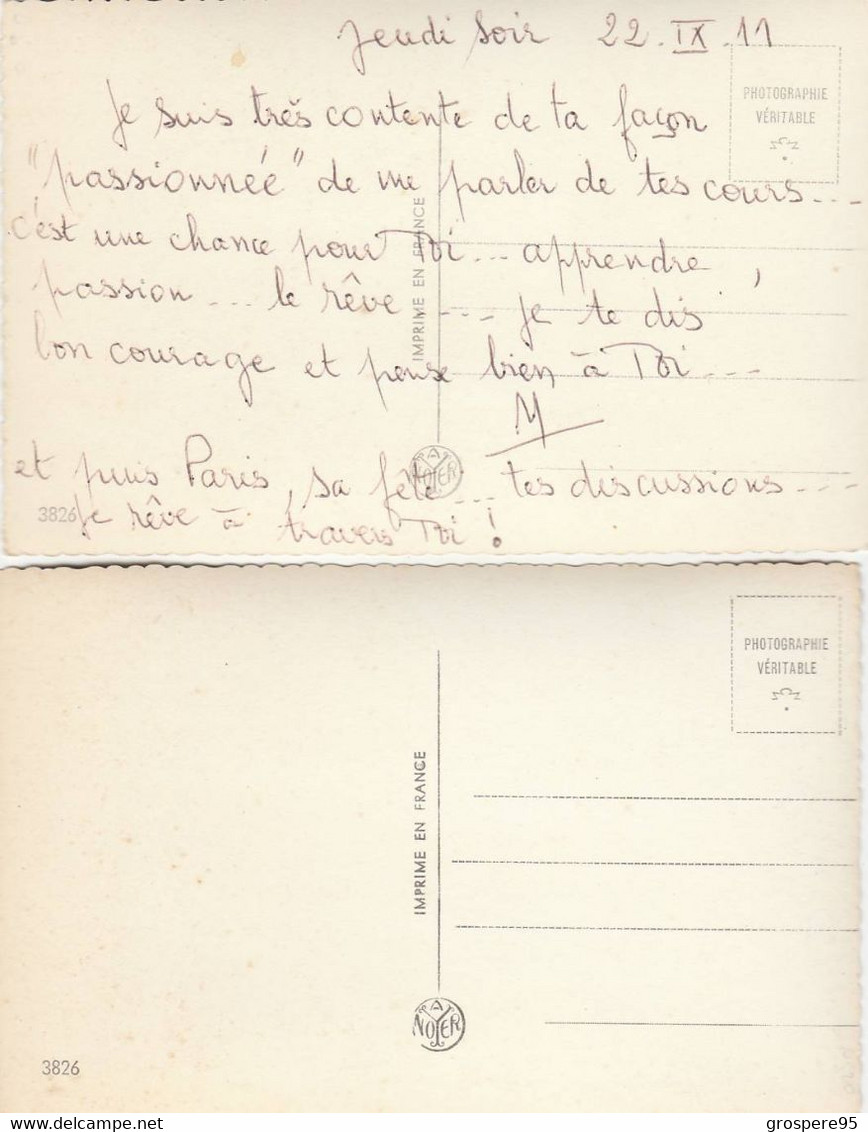 Jeudi Soir 22.IX.11
PHOTOGRAPHIE
VÉRITABLE
Je suis très contente de ta façon
"passionnée" de me parler de tes cours...
c'est une chance pour Toi... apprendre,
passion... le rêve... je te dis
bon courage et pense bien à Toi...
M
et puis Paris, sa fête... tes discussions...
Je rêve à travers Toi !
IMPRIME EN FRANCE
YA NOYER
3826
PHOTOGRAPHIE
VÉRITABLE
IMPRIME EN FRANCE
YA NOYER
3826
grospere95